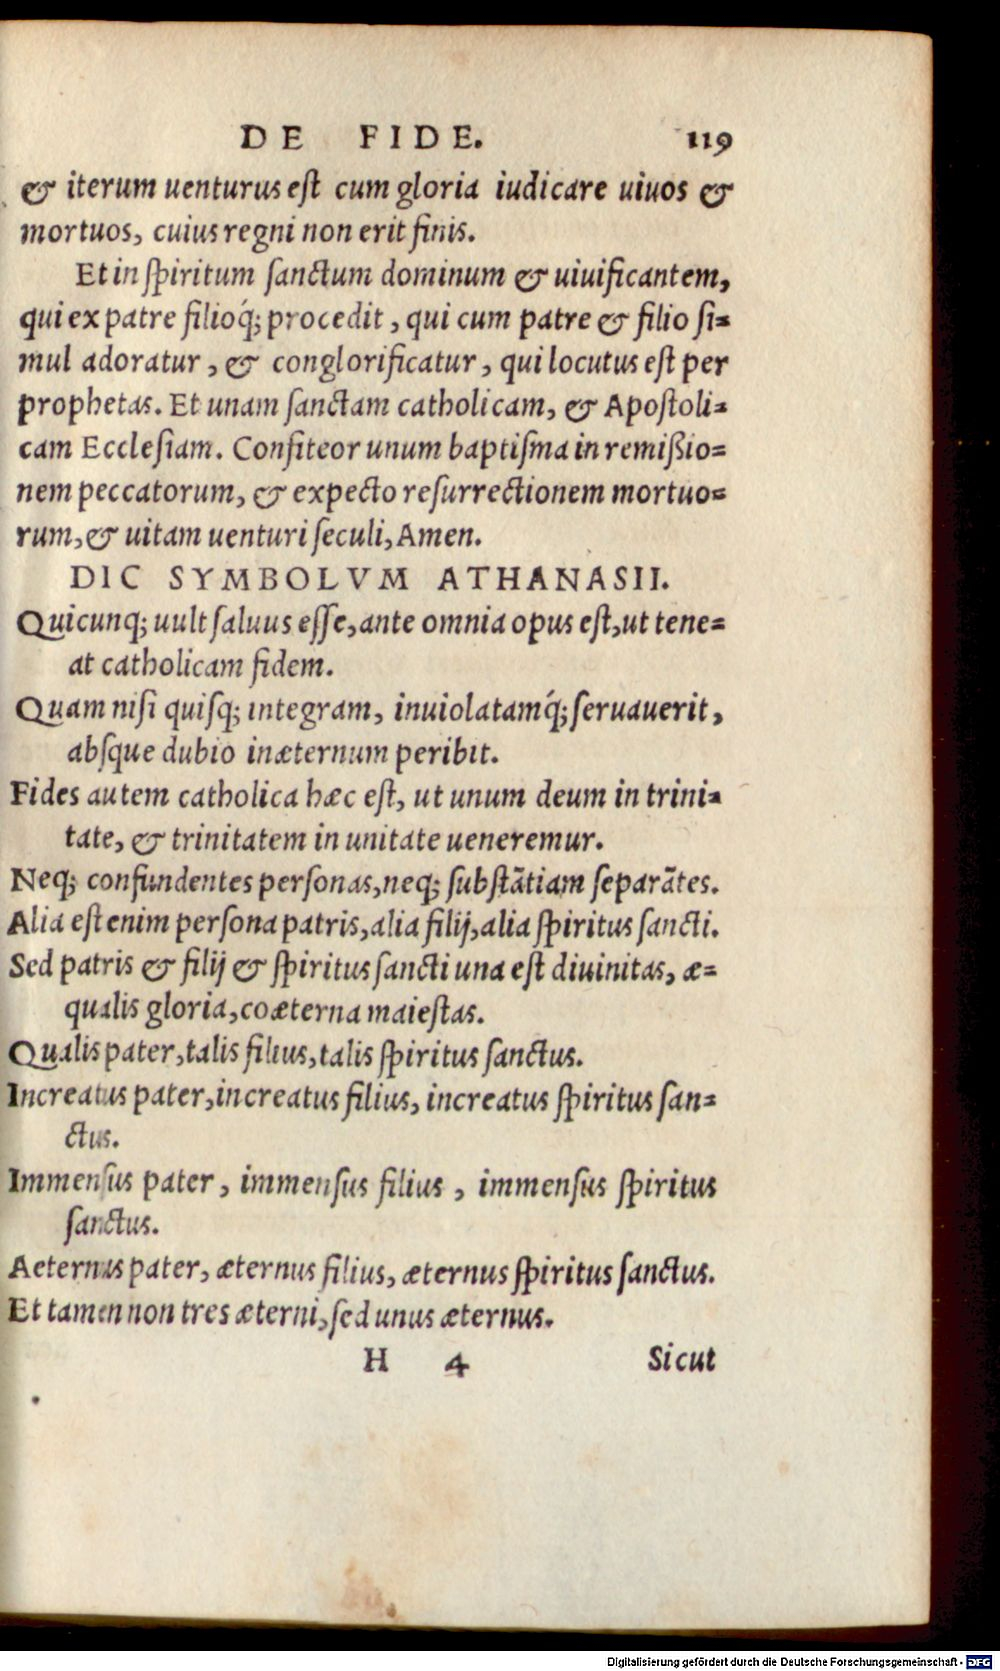 DE FIDE. 119
& iterum uenturus est cum gloria iudicare uiuos &
mortuos, cuius regni non erit finis.
Et in spiritum sanctum dominum & uiuificantem,
qui ex patre filioq́; procedit, qui cum patre & filio si=
mul adoratur, & conglorificatur, qui locutus est per
prophetas. Et unam sanctam catholicam, & Apostoli=
cam Ecclesiam. Confiteor unum baptisma in remißio=
nem peccatorum, & expecto resurrectionem mortuo=
rum, & uitam uenturi seculi, Amen.
DIC SYMBOLVM ATHANASII.
Quicunq; uult saluus esse, ante omnia opus est, ut tene=
at catholicam fidem.
Quam nisi quisq; integram, inuiolatamq́; seruauerit,
absque dubio inæternum peribit.
Fides autem catholica hæc est, ut unum deum in trini=
tate, & trinitatem in unitate ueneremur.
Neq; confundentes personas, neq; substãtiam separãtes.
Alia est enim persona patris, alia filij, alia spiritus sancti.
Sed patris & filij & spiritus sancti una est diuinitas, æ=
qualis gloria, coæterna maiestas.
Qualis pater, talis filius, talis spiritus sanctus.
Increatus pater, increatus filius, increatus spiritus san=
ctus.
Immensus pater, immensus filius, immensus spiritus
sanctus.
Aeternus pater, æternus filius, æternus spiritus sanctus.
Et tamen non tres æterni, sed unus æternus.
H 4 Sicut
Digitalisierung gefördert durch die Deutsche Forschungsgemeinschaft - DFG